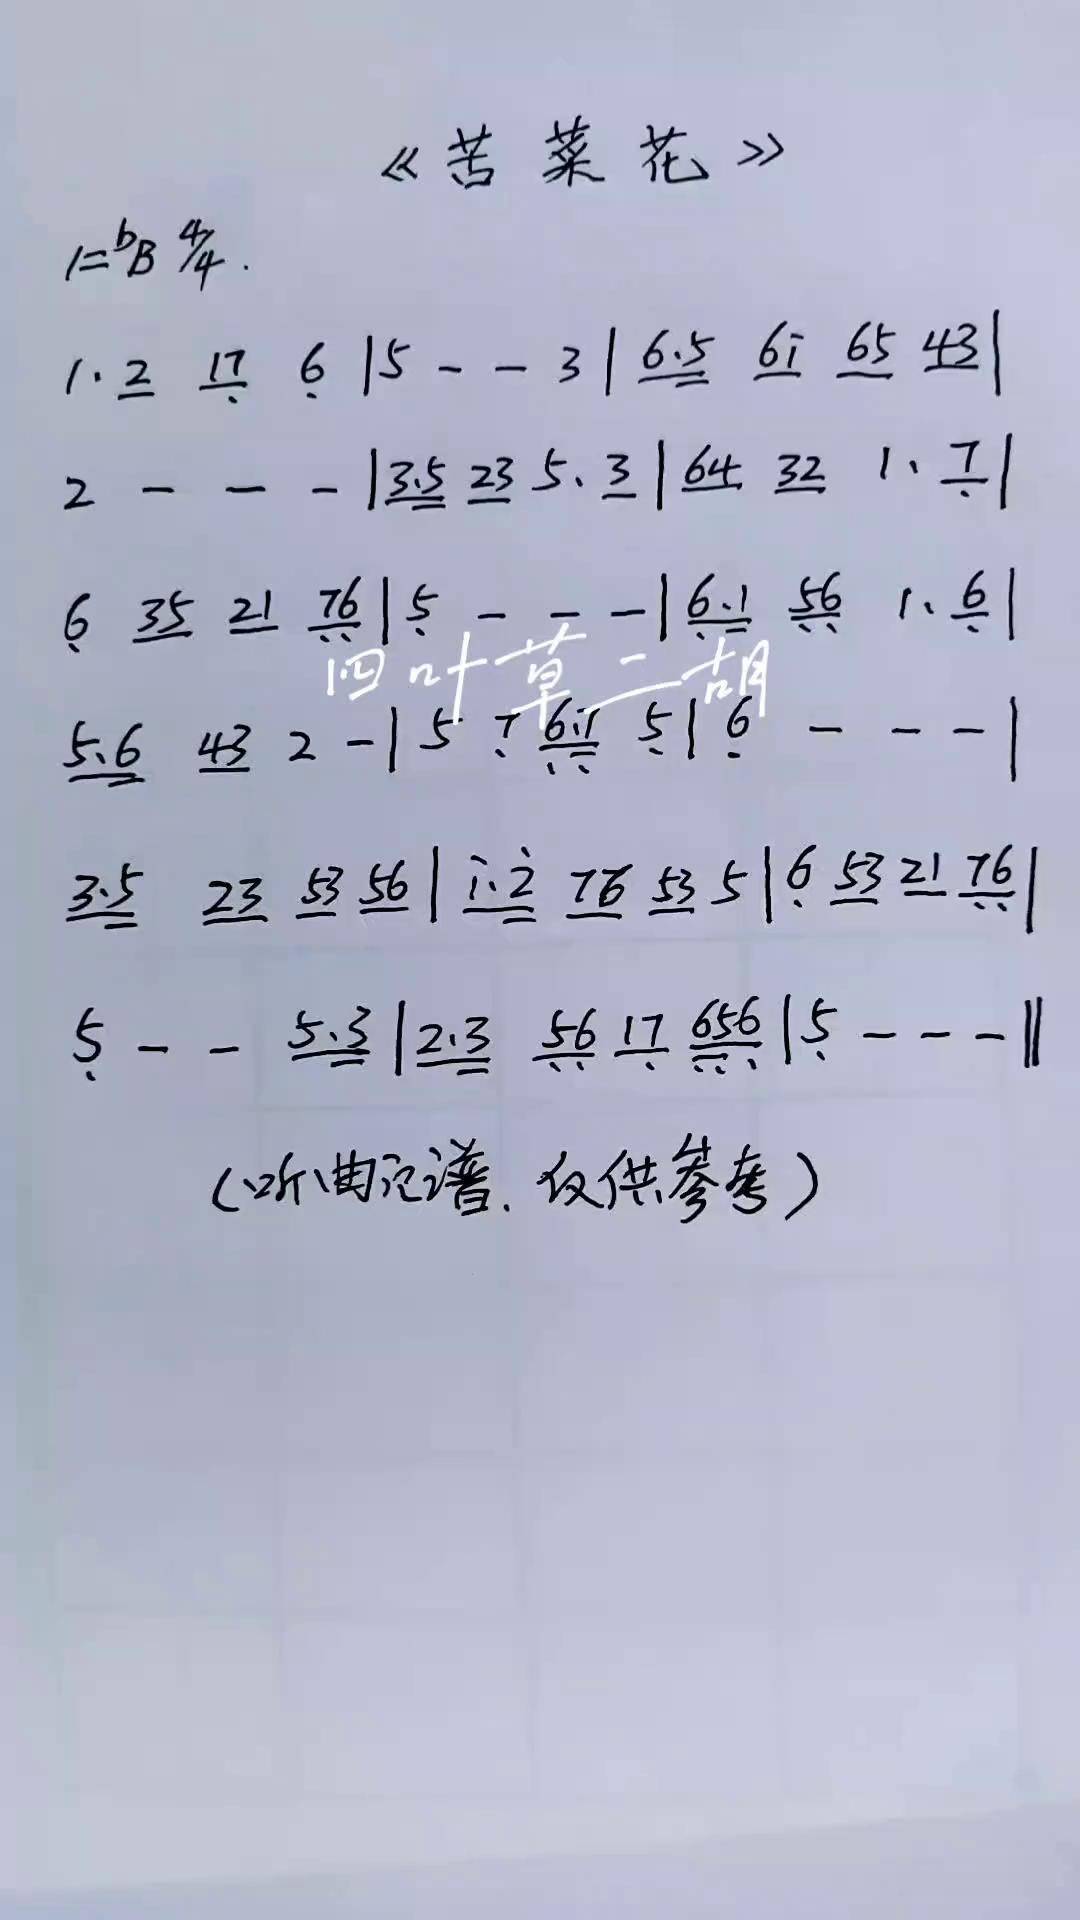 《苦菜花》
1=♭B 4/4.
1. 2 17 6 | 5 - - 3 | 6.5 6i 65 43 |
2 - - - | 3.5 23 5. 3 | 64 32 1. 7 |
6 35 21 76 | 5 - - - | 6.1 56 1. 6 |
四叶草二胡
5.6 43 2 - | 5 7 6.7 5 | 6 - - - |
3.5 23 53 56 | i.2̇ 76 53 5 | 6 53 21 76 |
5 - - 5.3 | 2.3 56 17 656 | 5 - - - ‖
(听曲记谱.仅供参考)